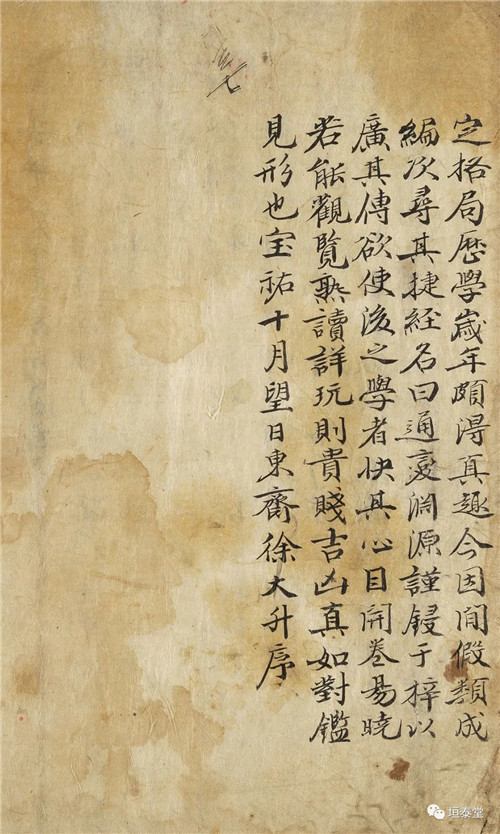 定格局歷學歲年頗得真趣今因閒假類成
編次尋其捷徑名曰通變淵源謹鋟于梓以
廣其傳欲使後之學者快其心目開卷易曉
若能觀覽熟讀詳玩則貴賤吉凶真如對鑑
見形也宝祐十月望日東齋徐大升序
垣泰堂